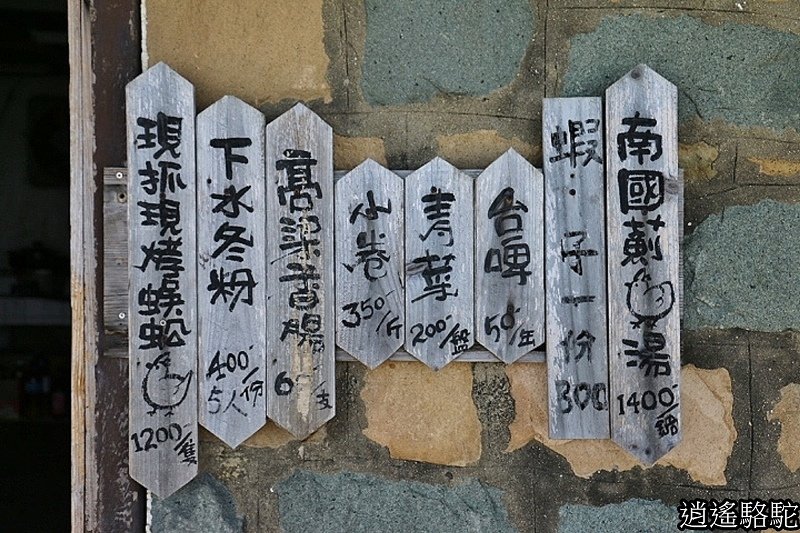 現抓現烤蜈蚣
1200/隻
下水冬粉
400/份
5人
高粱香腸
60/支
小卷
350/斤
青菜
200/盤
台啤
50/瓶
蝦子一份300
南國薊雞湯
1400/鍋
逍遙駱駝